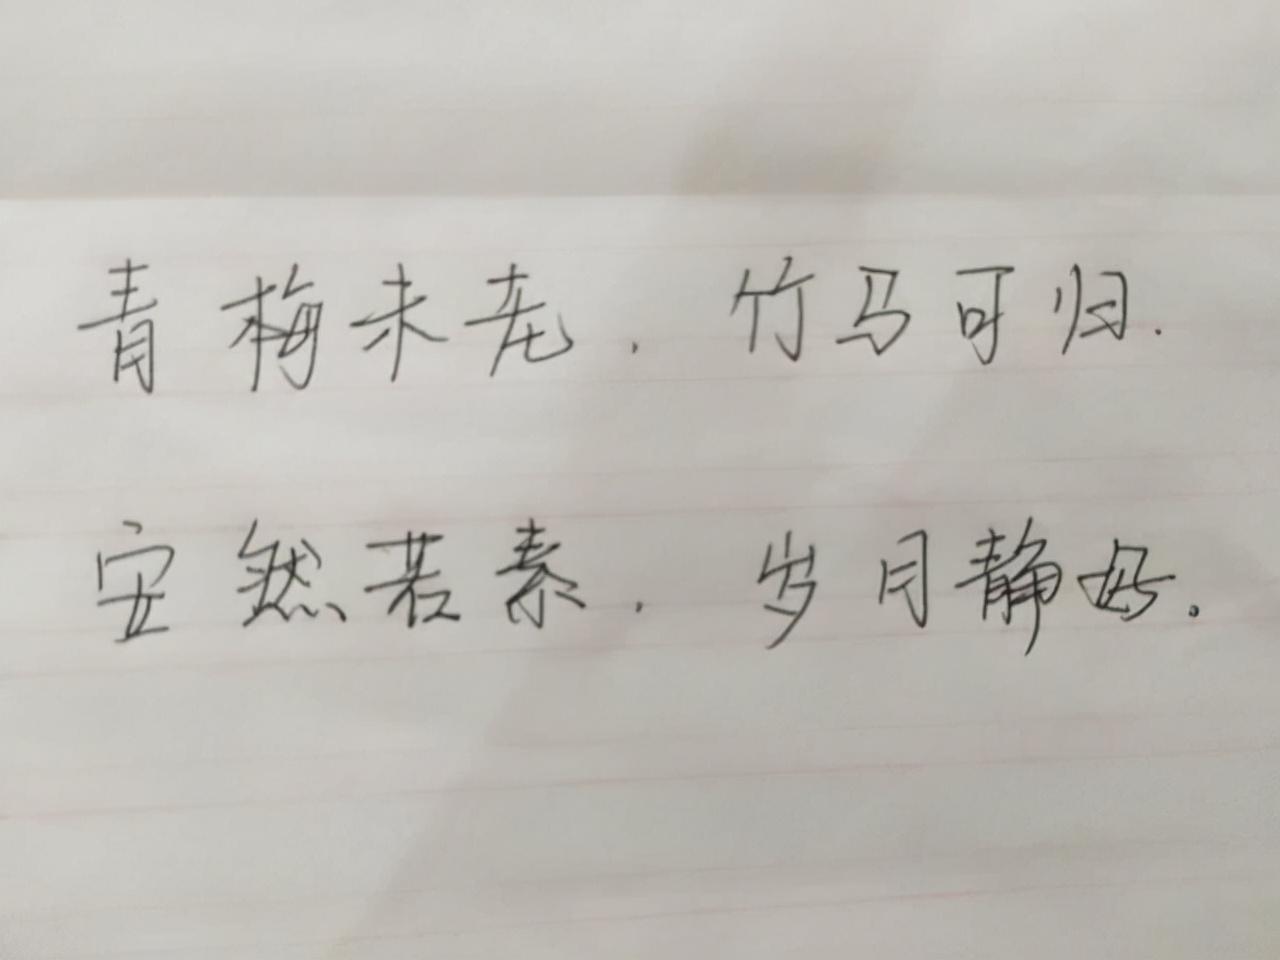 青梅未老,竹马可归.
安然若素,岁月静好。